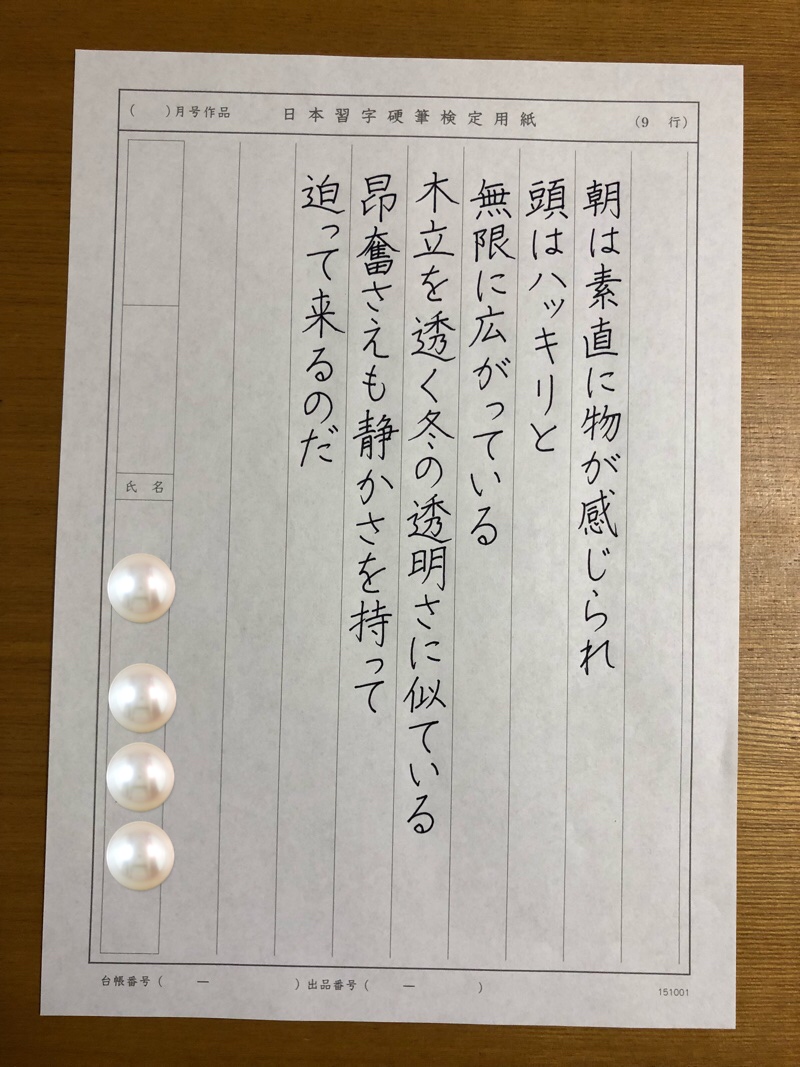 ( )月号作品 日本習字硬筆検定用紙 (9 行)
朝は素直に物が感じられ
頭はハッキリと
無限に広がっている
木立を透く冬の透明さに似ている
昂奮さえも静かさを持って
迫って来るのだ
氏名
台帳番号( ー ) 出品番号( ー )
151001